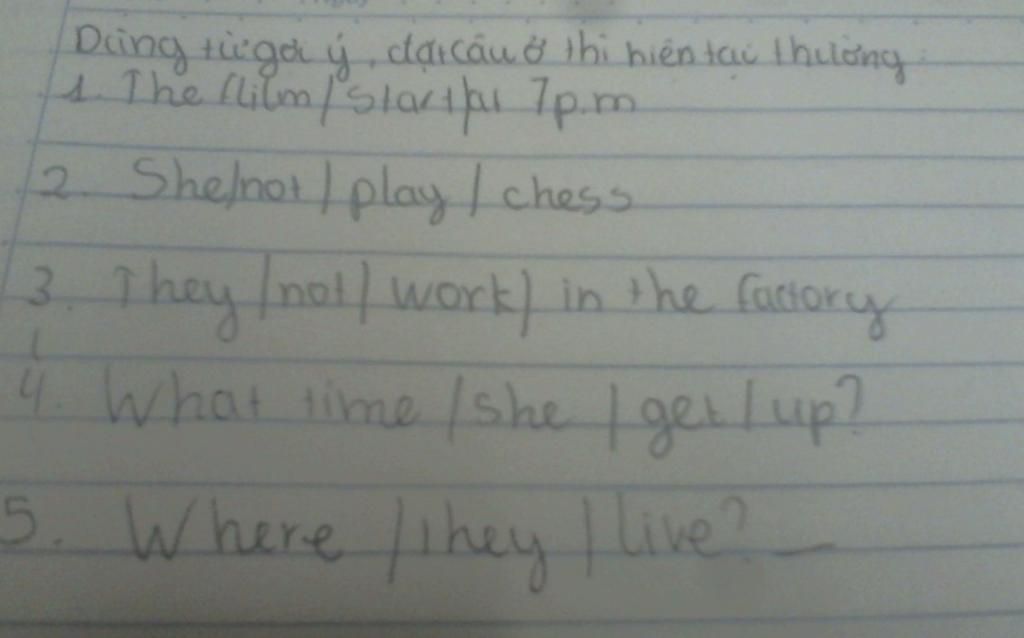 Dùng từ gợi ý, đặt câu ở thì hiện tại thường:
1. The film / start / at 7 p.m
2. She / not / play / chess
3. They / not / work / in the factory
4. What time / she / get / up?
5. Where / they / live?